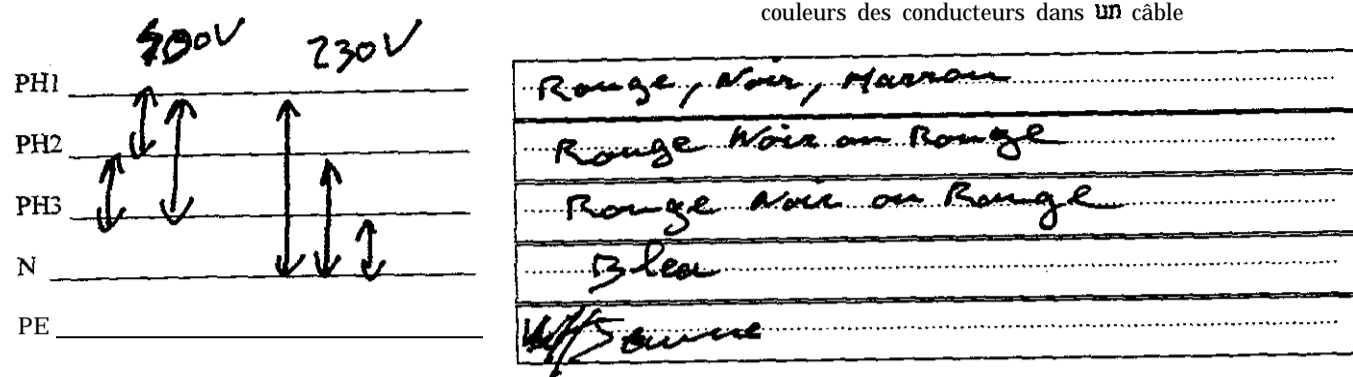 couleurs des conducteurs dans un câble
400V 230V
PH1 Rouge, Noir, Marron
PH2 Rouge Noir ou Rouge
PH3 Rouge Noir ou Rouge
N Bleu
PE V/Jaune